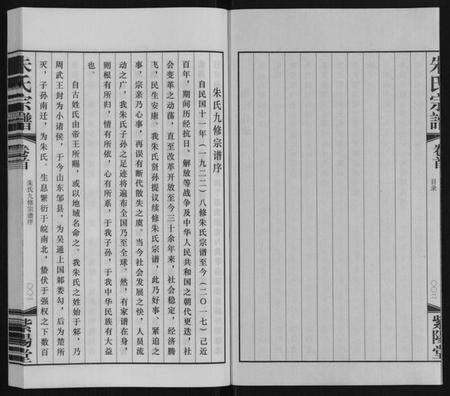 朱氏宗譜
卷首
目录
紫陽堂
朱氏九修宗谱序
自民国十一年（一九二二）八修朱氏宗谱至今（二〇一七）已近
百年，期间历经抗日、解放等战争及中华人民共和国之朝代更迭，社
会变革之动荡，直至改革开放至今三十余年来，社会稳定，经济腾
飞，民生安康。我朱氏贤孙提议续修朱氏宗谱，此乃好事、紧迫之
事，宗亲乃心事，再误有断代散失之虞。当今社会发展之快，人员流
动之广，我朱氏子孙之足迹将遍布全国乃至全球。然，有家谱在身，
则根有所归，情有所依，心有所系，于我子孙，于我中华民族有大益
也。
自古姓氏由帝王所赐，或以地域名命之。我朱氏之姓始于邾，乃
周武王封为小诸侯，于今山东邹县，为吴通上国邾娄勾，后为楚所
灭，子孙南迁，为朱氏。生息繁衍于皖南北，蛰伏于强权之下数百
朱氏宗譜
卷首
朱氏九修宗谱序
紫陽堂